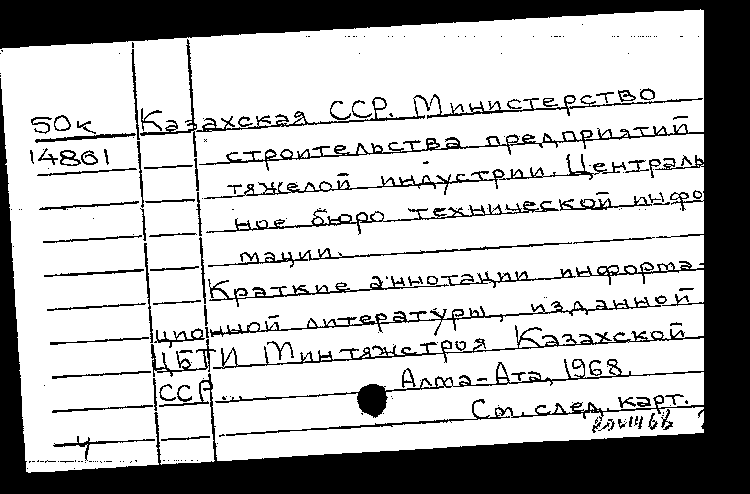 50к Казахская ССР. Министерство
14861 строительства предприятий
тяжелой индустрии. Централь
ное бюро технической инфо
мации.
Краткие аннотации информа-
ционной литературы, изданной
ЦБТИ Минтяжстроя Казахской
ССР... Алма-Ата, 1968.
См. след. карт.
4